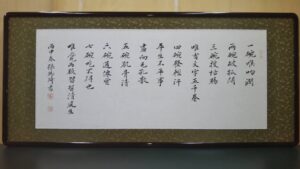 一碗喉吻潤
両碗破孤悶
三碗搜枯腸
唯有文字五千卷
四碗發輕汗
平生不平事
盡向毛孔散
五碗肌骨清
六碗通仙靈
七碗吃不得也
唯覺兩腋習習清風生
丙申春